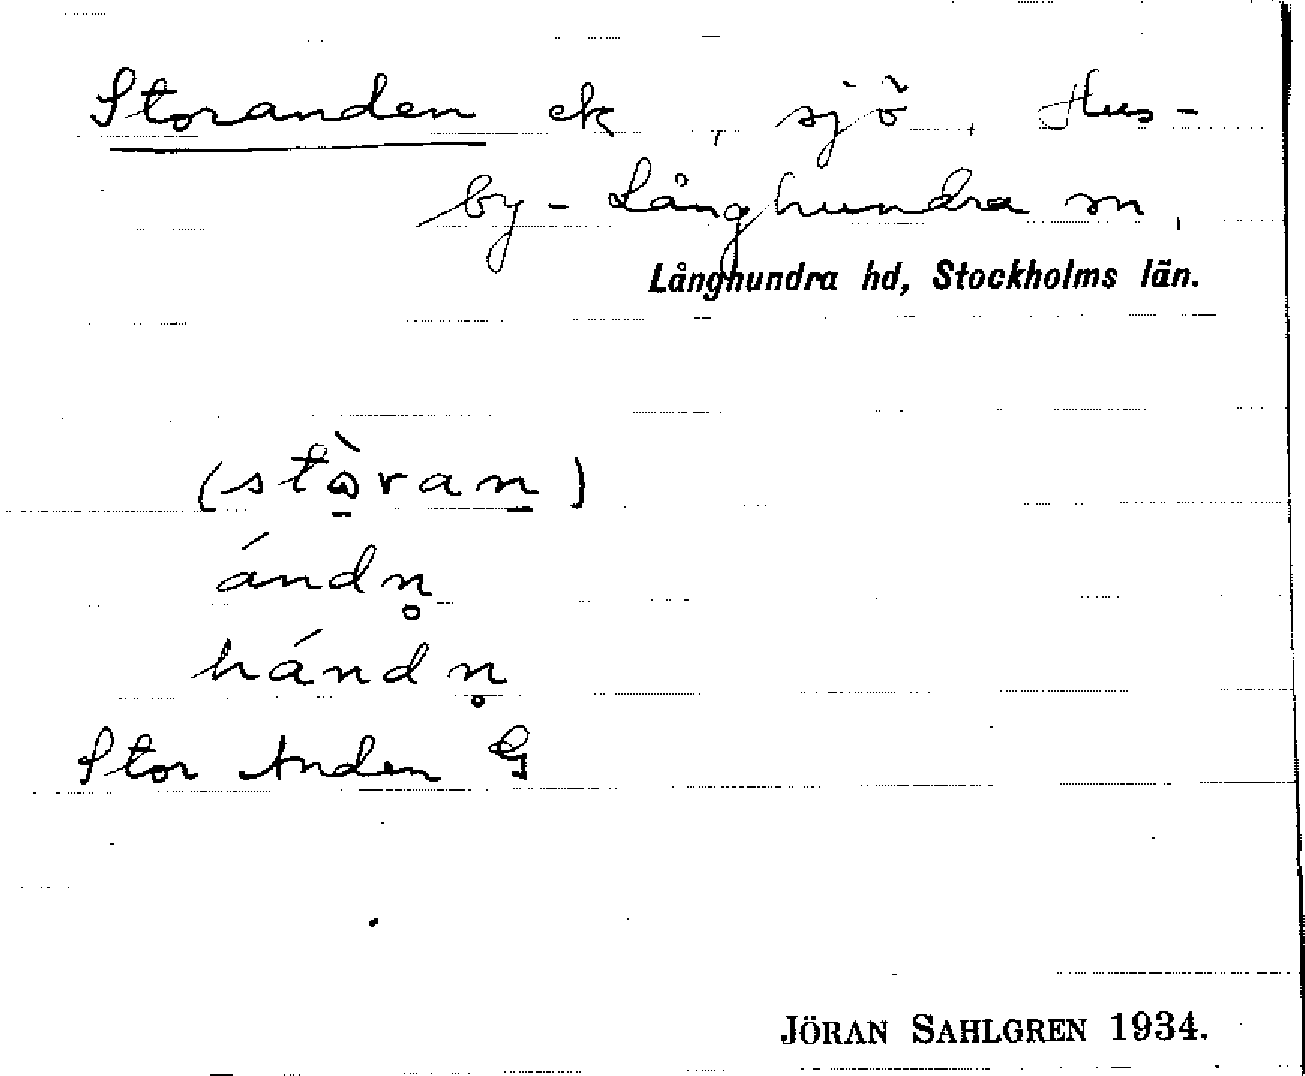 Storanden ek, sjö, Hus-
by-Långhundra sn,
Långhundra hd, Stockholms län.
(stɷ̠̀ran̠)
ándn̥
hándn̥
Stor Anden G
JÖRAN SAHLGREN 1934.